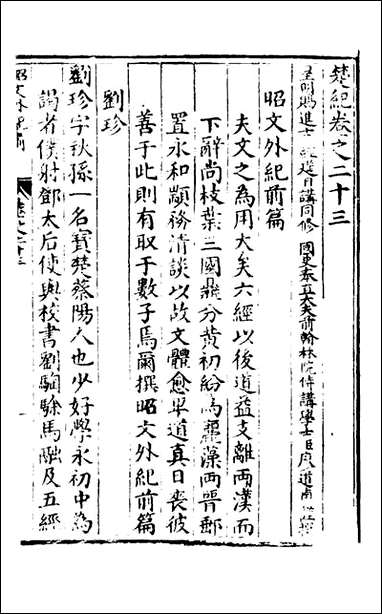 楚紀卷之二十三
皇明賜進士 經筵日講同修 國史奉直大夫前翰林院侍講學士臣廖道南
昭文外紀前篇
夫文之為用大矣六經以後道益支離兩漢而
下辭尚枝葉三國鼎分黃初給為麗藻兩晉郵
置永和顓務清談以故文體愈卑道真日喪彼
善于此則有取于數子焉爾撰昭文外紀前篇
劉珍
劉珍字秋孫一名寶楚蔡陽人也少好學永初中為
謁者僕射鄧太后使與校書劉騊駼馬融及五經
昭文外紀前
卷之二十三
一